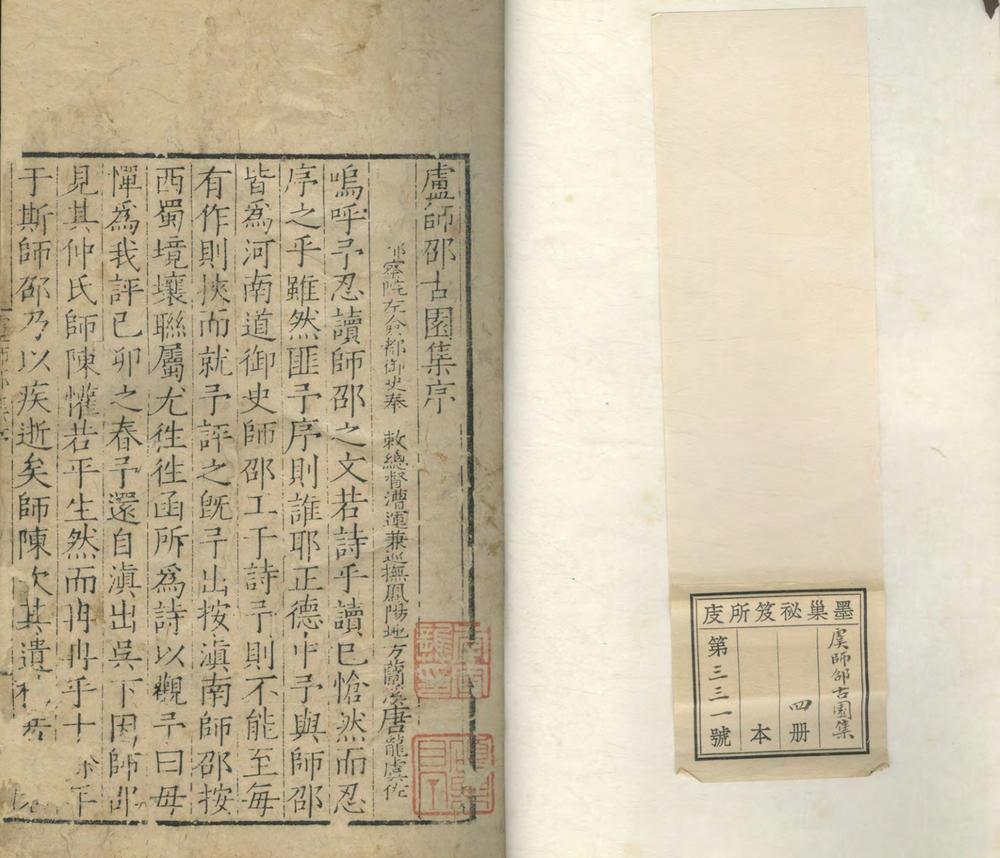 盧師邵古園集序
察院左僉都御史奉　敕總督漕運兼巡撫鳳陽地方蘭溪唐龍虞佐
嗚呼予忍讀師邵之文若詩乎讀已愴然而忍
序之乎雖然匪予序則誰耶正德中予與師邵
皆為河南道御史師邵工于詩予則不能至每
有作則挾而就予評之既予出按滇南師邵按
西蜀境壤聯屬尤徃徃函所為詩以觀予曰毋
憚為我評己卯之春予還自滇出吳下因師邵
見其仲氏師陳懽若平生然而冉冉乎十
于斯師邵乃以疾逝矣師陳次其遺
墨巢祕笈所庋
虞師邵古園集
四册
本
第三三一號